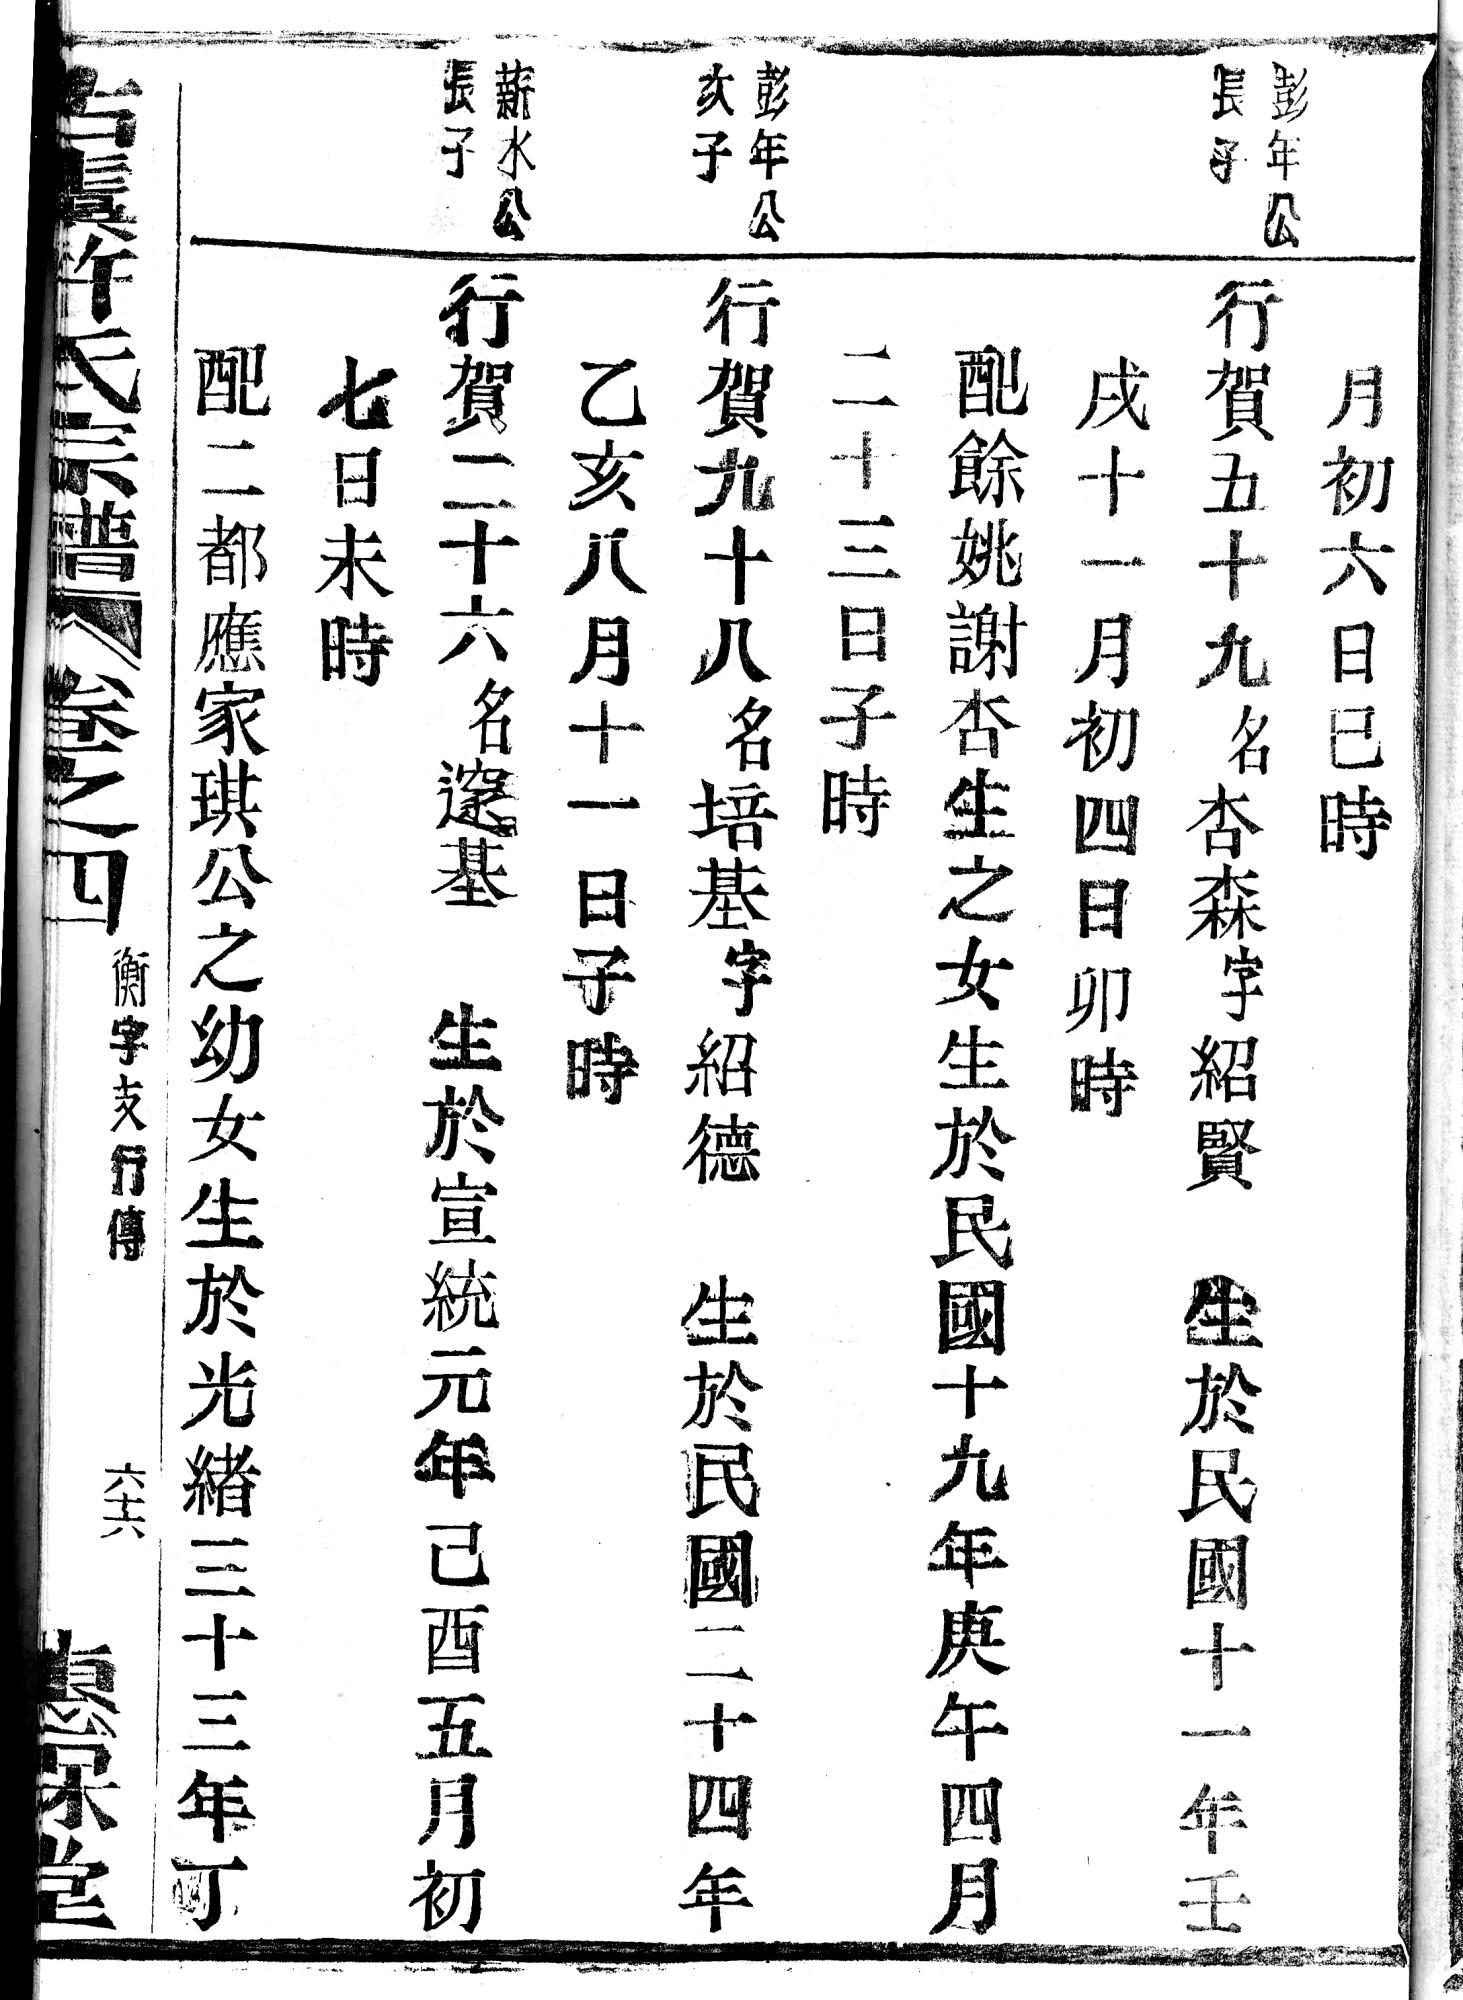 月初六日巳時
彭年公
長子
行賀五十九名杏森字紹賢　生於民國十一年壬
戌十一月初四日卯時
配餘姚謝杏生之女生於民國十九年庚午四月
二十三日子時
彭年公
次子
行賀九十八名培基字紹德　生於民國二十四年
乙亥八月十一日子時
薪水公
長子
行賀二十六名邃基　生於宣統元年己酉五月初
七日未時
配二都應家琪公之幼女生於光緒三十三年丁
古虞許氏宗譜　卷之四　衡字支行傳　六十六　惠保堂